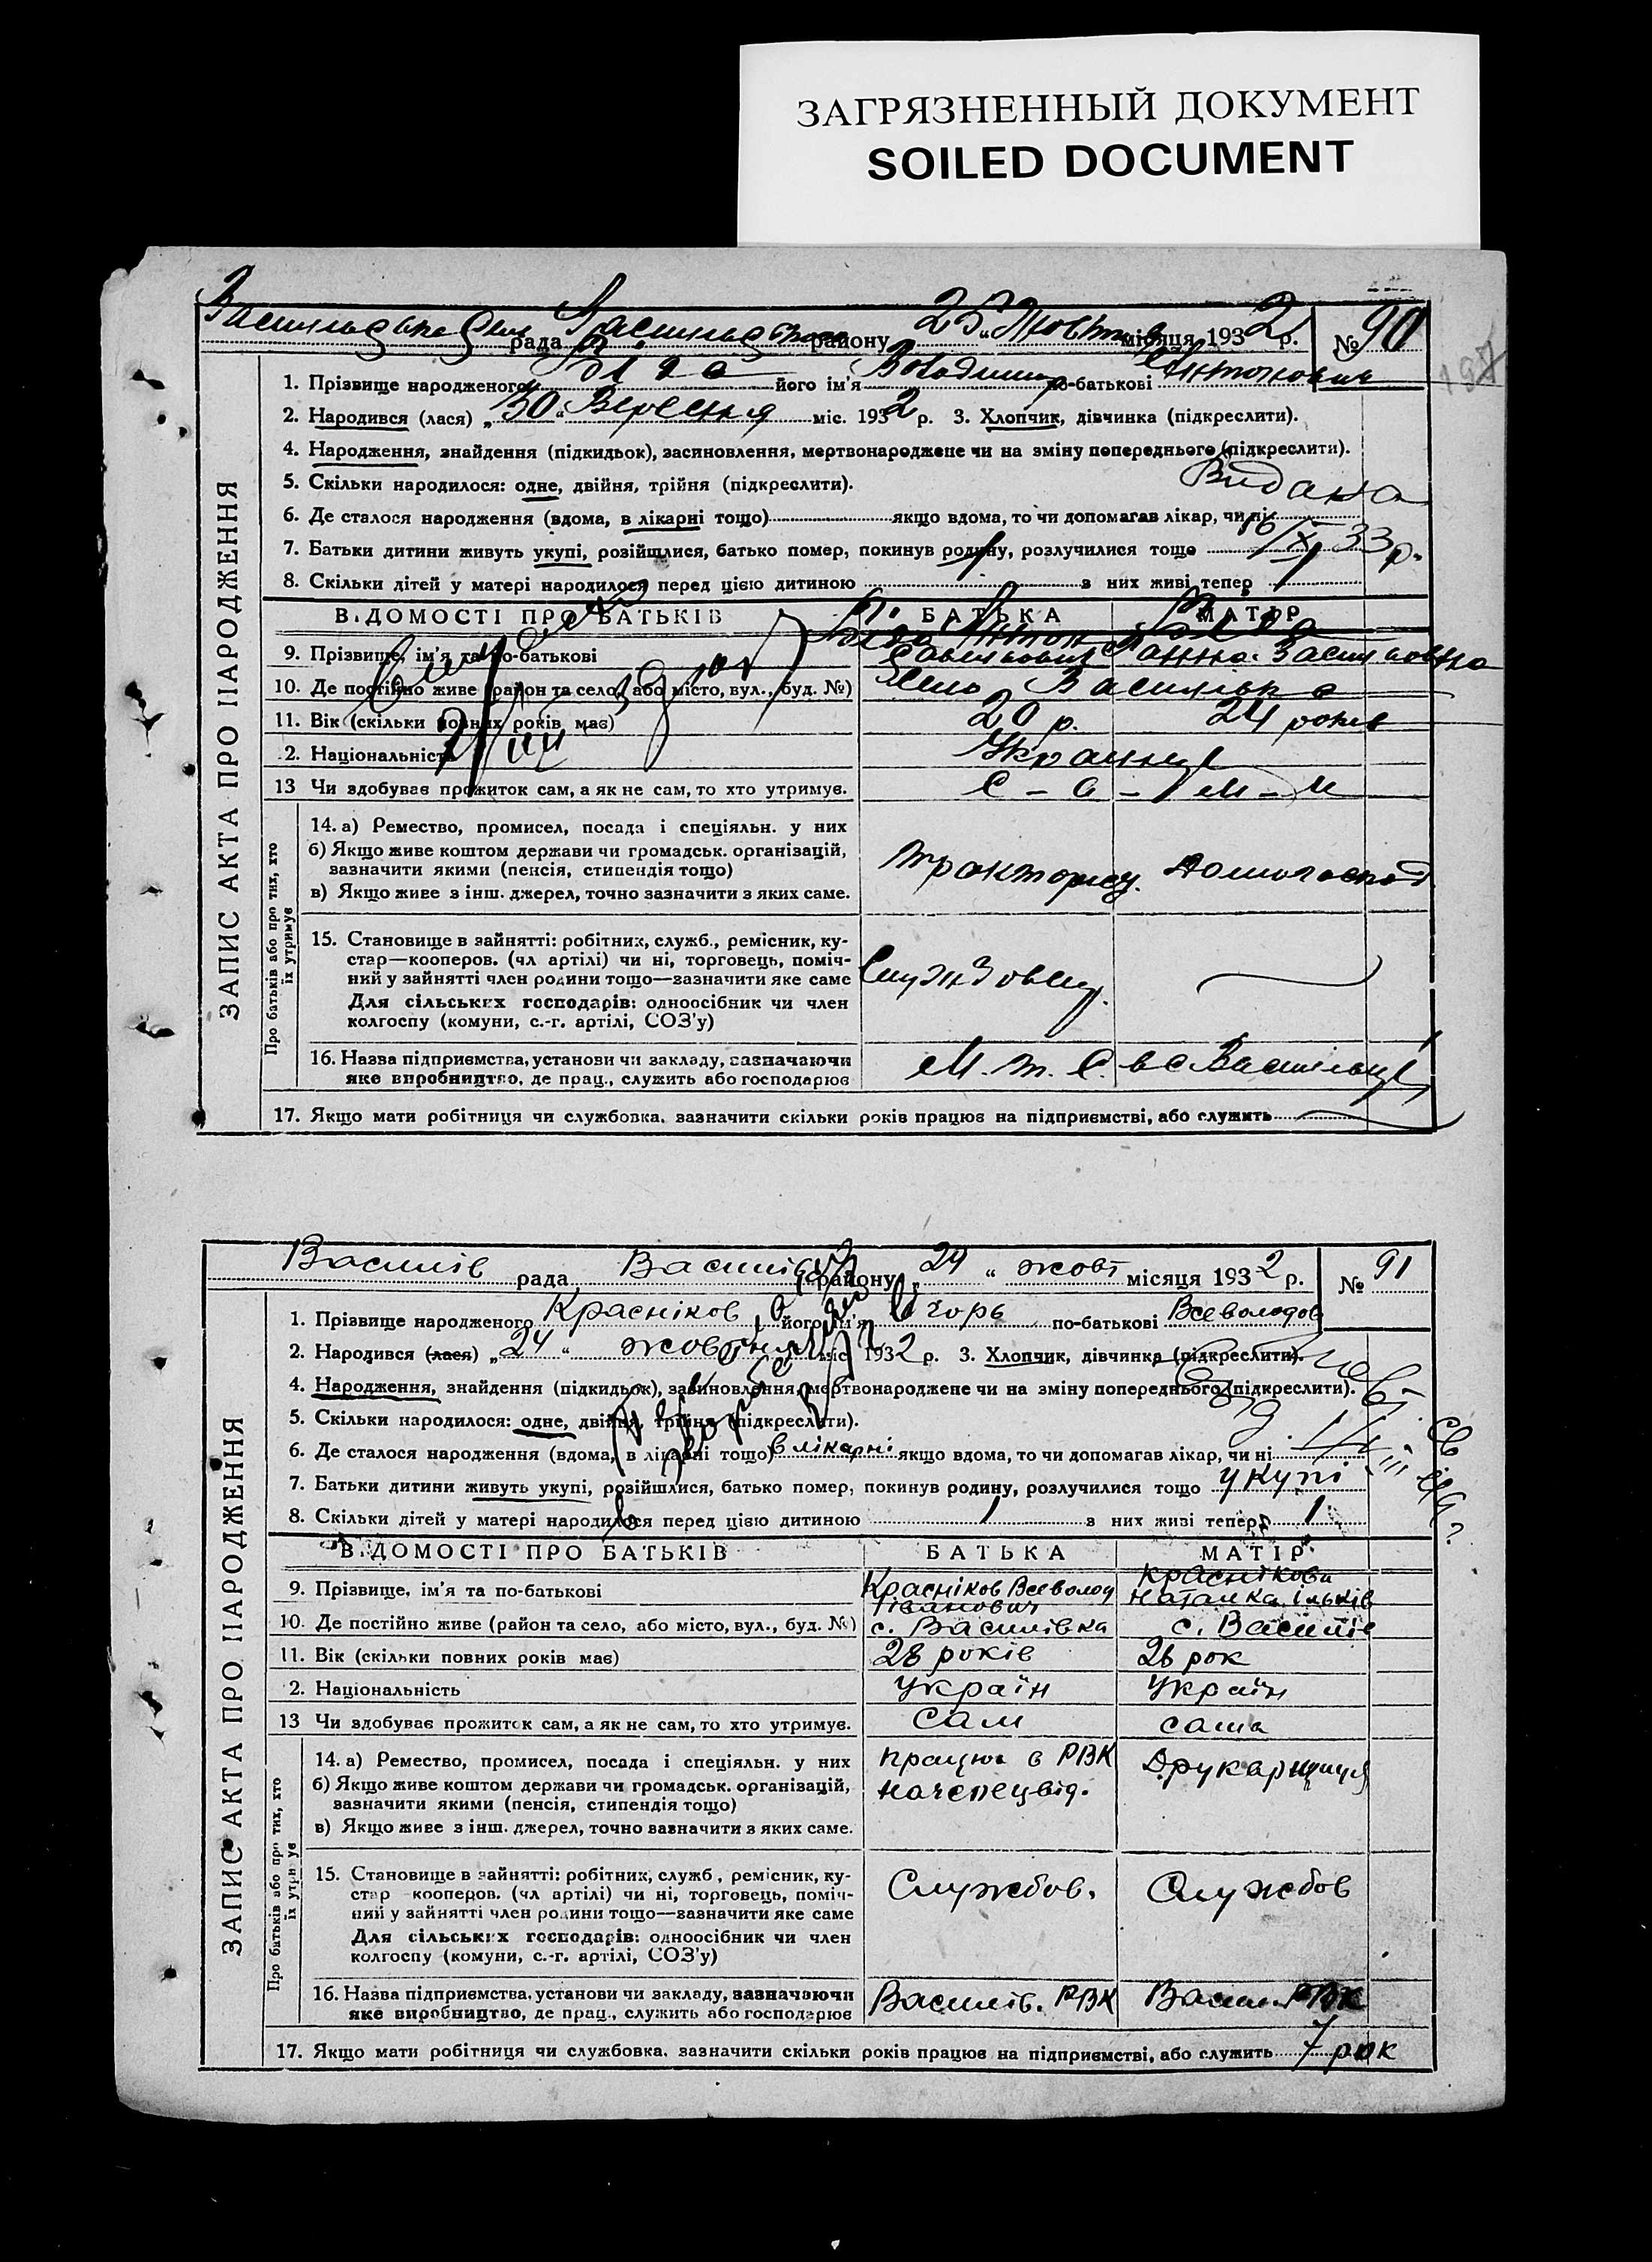 ЗАГРЯЗНЕННЫЙ ДОКУМЕНТ
SOILED DOCUMENT
рада району 25 " Жовтня місяця 1932 р. № 90
ЗАПИС АКТА ПРО НАРОДЖЕННЯ
1. Прізвище народженого його ім'я по-батькові Антонович
2. Народився (лася) „30" Вересня міс. 1932 р. 3. Хлопчик, дівчинка (підкреслити).
4. Народження, знайдення (підкидьок), засиновлення, мертвонароджене чи на зміну попереднього (підкреслити).
5. Скільки народилося: одне, двійня, трійня (підкреслити). Видана
6. Де сталося народження (вдома, в лікарні тощо) якщо вдома, то чи допомагав лікар, чи ні
7. Батьки дитини живуть укупі, розійшлися, батько помер, покинув родину, розлучилися тощо 33 р.
8. Скільки дітей у матері народилося перед цією дитиною 1 з них живі тепер 1
ВІДОМОСТІ ПРО БАТЬКІВ БАТЬКА МАТІР
9. Прізвище, ім'я та по-батькові Антон
10. Де постійно живе (район та село, або місто, вул., буд. №)
11. Вік (скільки повних років має) 20 р. 24 роки
2. Національність
13 Чи здобуває прожиток сам, а як не сам, то хто утримує. С - а - м - и
Про батьків або про тих, хто їх утримує
14. а) Ремество, промисел, посада і спеціяльн. у них
б) Якщо живе коштом держави чи громадськ. організацій,
зазначити якими (пенсія, стипендія тощо)
в) Якщо живе з інш. джерел, точно зазначити з яких саме.
15. Становище в зайнятті: робітник, служб., ремісник, ку-
стар—кооперов. (чл артілі) чи ні, торговець, поміч-
ний у зайнятті член родини тощо—зазначити яке саме
Для сільських господарів: одноосібник чи член
колгоспу (комуни, с.-г. артілі, СОЗ'у)
16. Назва підприємства, установи чи закладу, зазначаючи
яке виробництво, де прац., служить або господарює М. т. С.
17. Якщо мати робітниця чи службовка, зазначити скільки років працює на підприємстві, або служить
Василів рада району „24 " жовт місяця 1932 р. № 91
ЗАПИС АКТА ПРО НАРОДЖЕННЯ
1. Прізвище народженого Красніков його ім'я Ігорь по-батькові Всеволодов
2. Народився (лася) „24 " жовтня міс. 1932 р. 3. Хлопчик, дівчинка (підкреслити).
4. Народження, знайдення (підкидьок), засиновлення, мертвонароджене чи на зміну попереднього (підкреслити).
5. Скільки народилося: одне, двійня, трійня (підкреслити).
6. Де сталося народження (вдома, в лікарні тощо) в лікарні якщо вдома, то чи допомагав лікар, чи ні
7. Батьки дитини живуть укупі, розійшлися, батько помер, покинув родину, розлучилися тощо укупі
8. Скільки дітей у матері народилося перед цією дитиною 1 з них живі тепер 1
ВІДОМОСТІ ПРО БАТЬКІВ БАТЬКА МАТІР
9. Прізвище, ім'я та по-батькові Красніков Всеволод Іванович Краснікова Наталка Ільків
10. Де постійно живе (район та село, або місто, вул., буд. №) с. Василівка с. Василів
11. Вік (скільки повних років має) 28 років 26 рок
2. Національність Україн Україн
13 Чи здобуває прожиток сам, а як не сам, то хто утримує. сам сама
Про батьків або про тих, хто їх утримує
14. а) Ремество, промисел, посада і спеціяльн. у них працює в РВК
б) Якщо живе коштом держави чи громадськ. організацій, начспецвід.
зазначити якими (пенсія, стипендія тощо)
в) Якщо живе з інш. джерел, точно зазначити з яких саме.
15. Становище в зайнятті: робітник, служб, ремісник, ку- Службов. Службов
стар кооперов. (чл артілі) чи ні, торговець, поміч-
ний у зайнятті член родини тощо—зазначити яке саме
Для сільських господарів: одноосібник чи член
колгоспу (комуни, с.-г. артілі, СОЗ'у)
16. Назва підприємства, установи чи закладу, зазначаючи
яке виробництво, де прац., служить або господарює Василів. РВК Васил. РВК
17. Якщо мати робітниця чи службовка, зазначити скільки років працює на підприємстві, або служить 7 рок